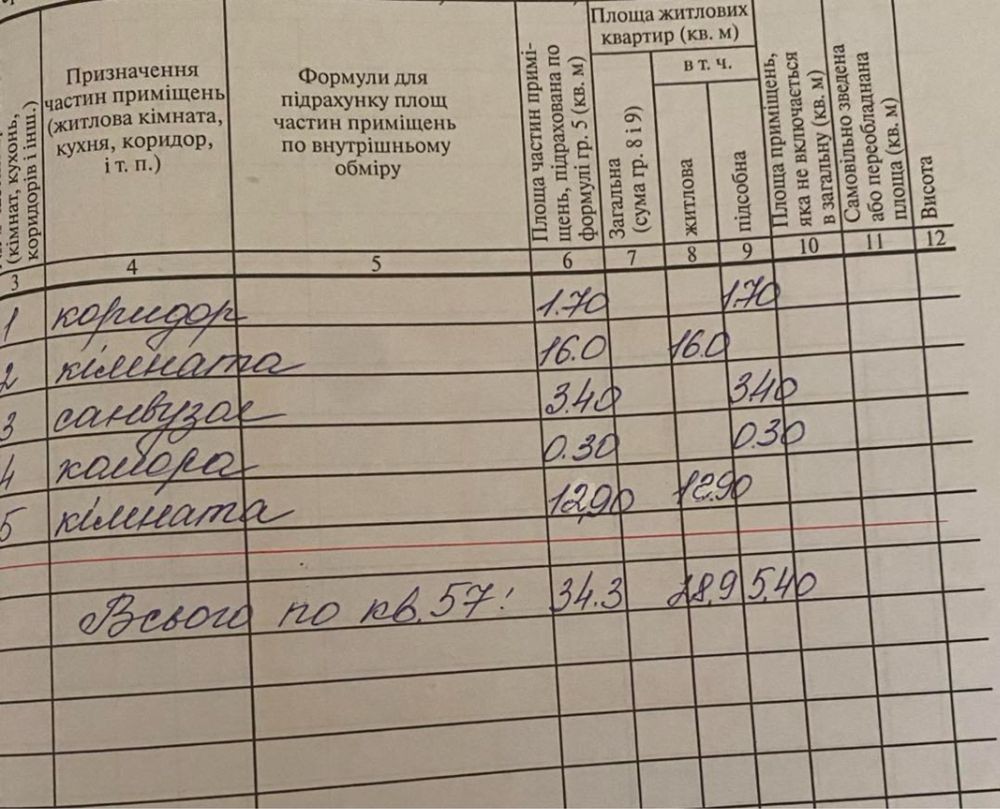 (кімнат, кухонь,
коридорів і інш.)
Призначення
частин приміщень
(житлова кімната,
кухня, коридор,
і т. п.)
Формули для
підрахунку площ
частин приміщень
по внутрішньому
обміру
Площа частин примі-
щень, підрахована по
формулі гр. 5 (кв. м)
Площа житлових
квартир (кв. м)
Загальна
(сума гр. 8 і 9)
в т. ч.
житлова
підсобна
Площа приміщень,
яка не включається
в загальну (кв. м)
Самовільно зведена
або переобладнана
площа (кв. м)
Висота
3 4 5 6 7 8 9 10 11 12
1 коридор 1.70 1.70
2 кімната 16.0 16.0
3 санвузол 3.40 3.40
4 комора 0.30 0.30
5 кімната 12,90 12.90
Всього по кв. 57: 34.3 28.9 5.40